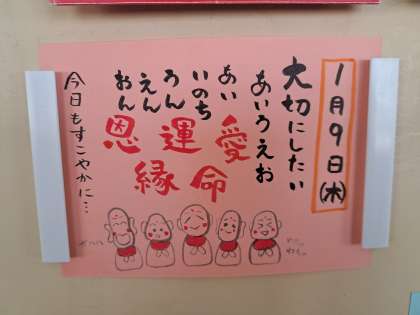 1月9日(木)
大切にしたい
あいうえお
あい
いのち
うん
えん
おん
愛
命
運
縁
恩
今日もすこやかに…